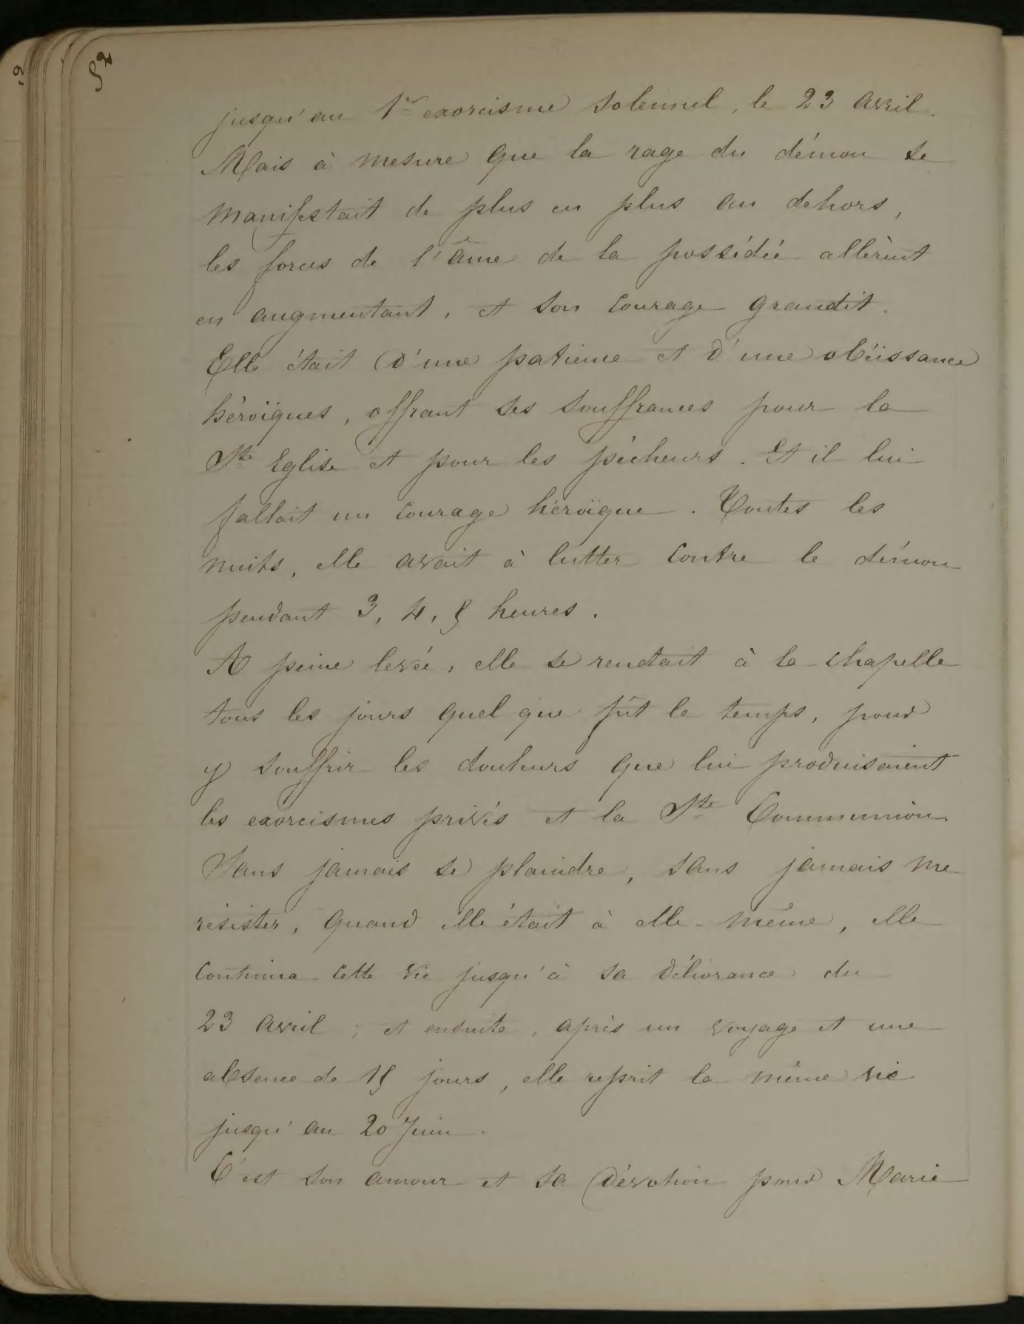 52
jusqu'au 1er exorcisme solennel, le 23 Avril.
Mais à mesure que la rage du démon se
manifestait de plus en plus au dehors,
les forces de l'âme de la possédée allèrent
en augmentant, et son courage grandit.
Elle était d'une patience et d'une obéissance
héroïques, offrant ses souffrances pour la
Ste Eglise et pour les pécheurs. Et il lui
fallait un courage héroïque. Toutes les
nuits, elle avait à lutter contre le démon
pendant 3, 4, 5 heures.
A peine levée, elle se rendait à la chapelle
tous les jours quel que fût le temps, pour
y souffrir les douleurs que lui produisaient
les exorcismes privés et la Ste Communion
Sans jamais se plaindre, sans jamais me
résister, quand elle était à elle-même, elle
continua cette vie jusqu'à sa délivrance du
23 Avril ; et ensuite, après un voyage et une
absence de 15 jours, elle reprit la même vie
jusqu'au 20 Juin.
C'est son amour et sa dévotion pour Marie